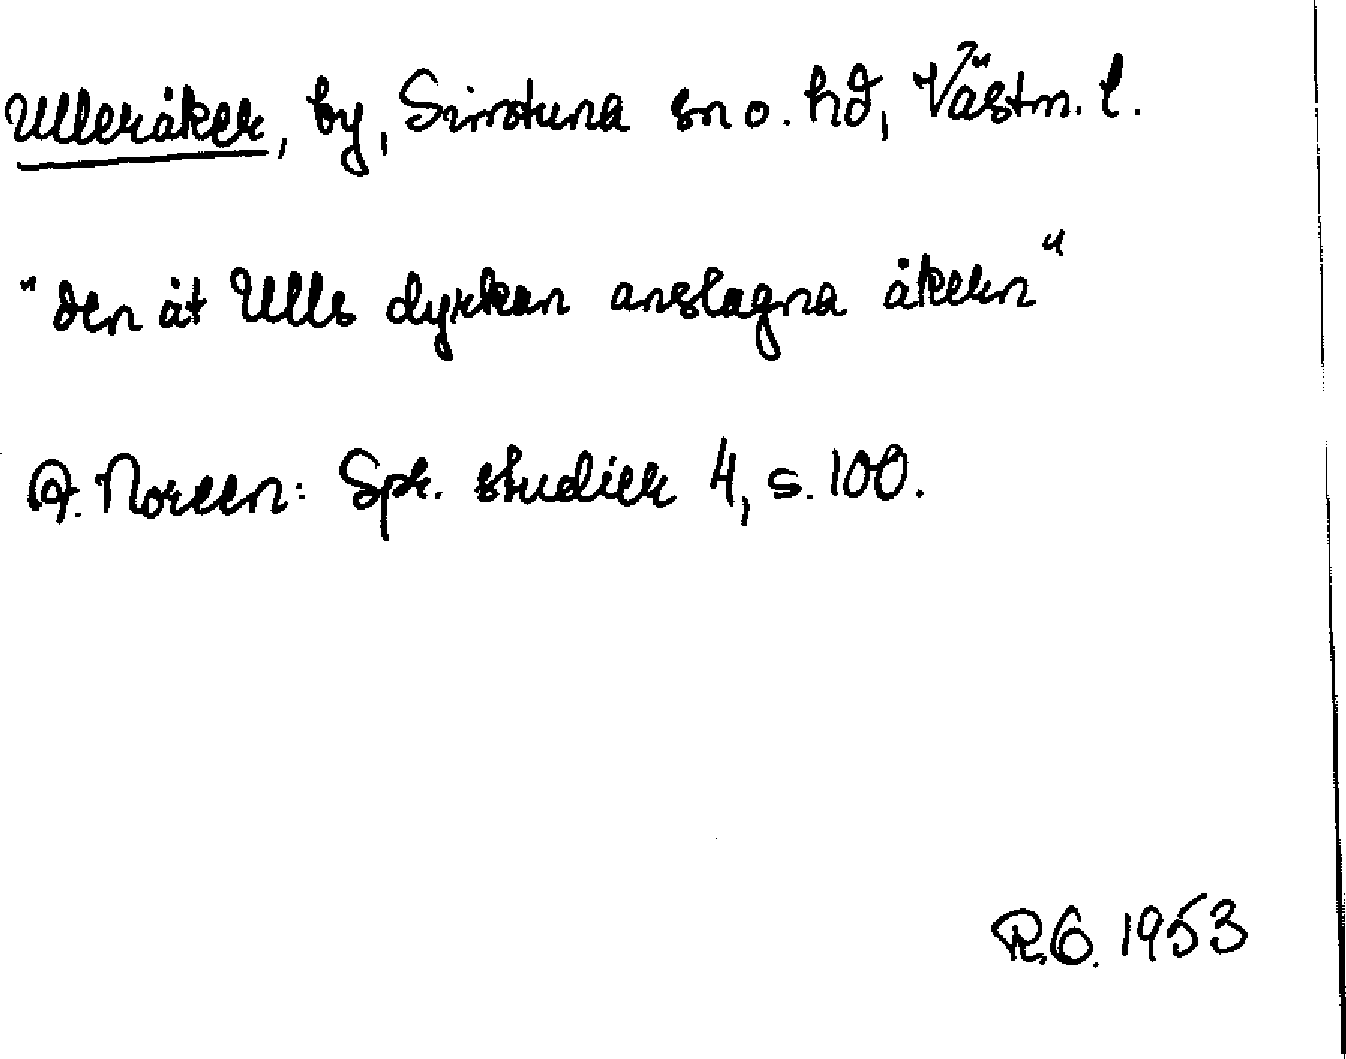 Ulleråker, by, Simtuna sn o. hd, Västm. l.
"den åt Ulls dyrkan anslagna åkern"
A. Noreen: Spr. studier 4, s. 100.
R.G. 1953